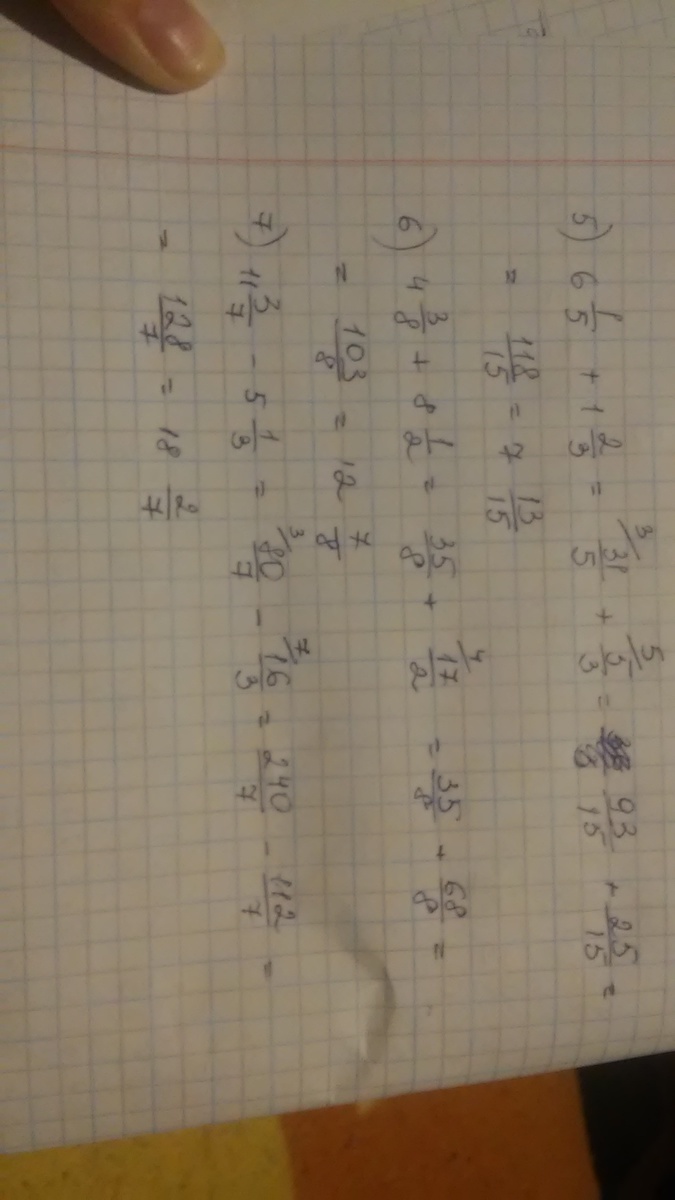 5) 6 1/5 + 1 2/3 = 31/5 (3 + 5/3 (5 = 93/15 + 25/15 =
= 118/15 = 7 13/15
6) 4 3/8 + 8 1/2 = 35/8 + 17/2 (4 = 35/8 + 68/8 =
= 103/8 = 12 7/8
7) 11 3/7 - 5 1/3 = 80/7 (3 - 16/3 (7 = 240/7 - 112/7 =
= 128/7 = 18 2/7